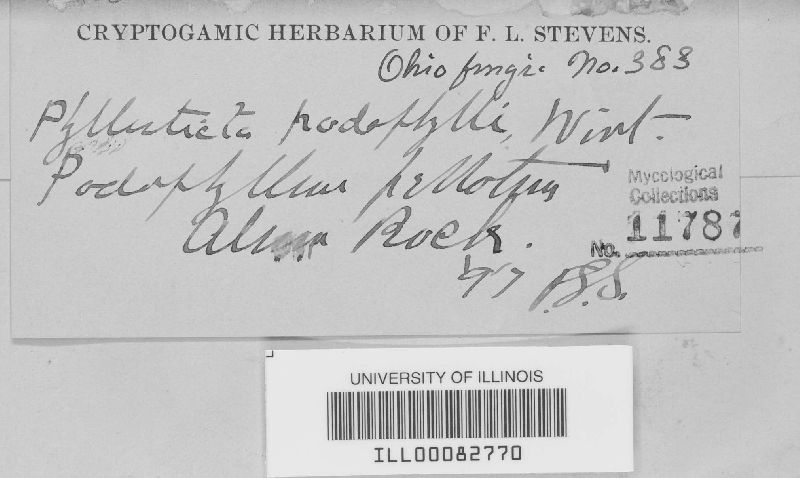 CRYPTOGAMIC HERBARIUM OF F. L. STEVENS.
Ohio fungi. No. 383
Phyllosticta podophylli, Wint.
Podophyllum peltatum
Rock.
Mycological
Collections
No. 11787
F.L.S.
UNIVERSITY OF ILLINOIS
ILL00082770